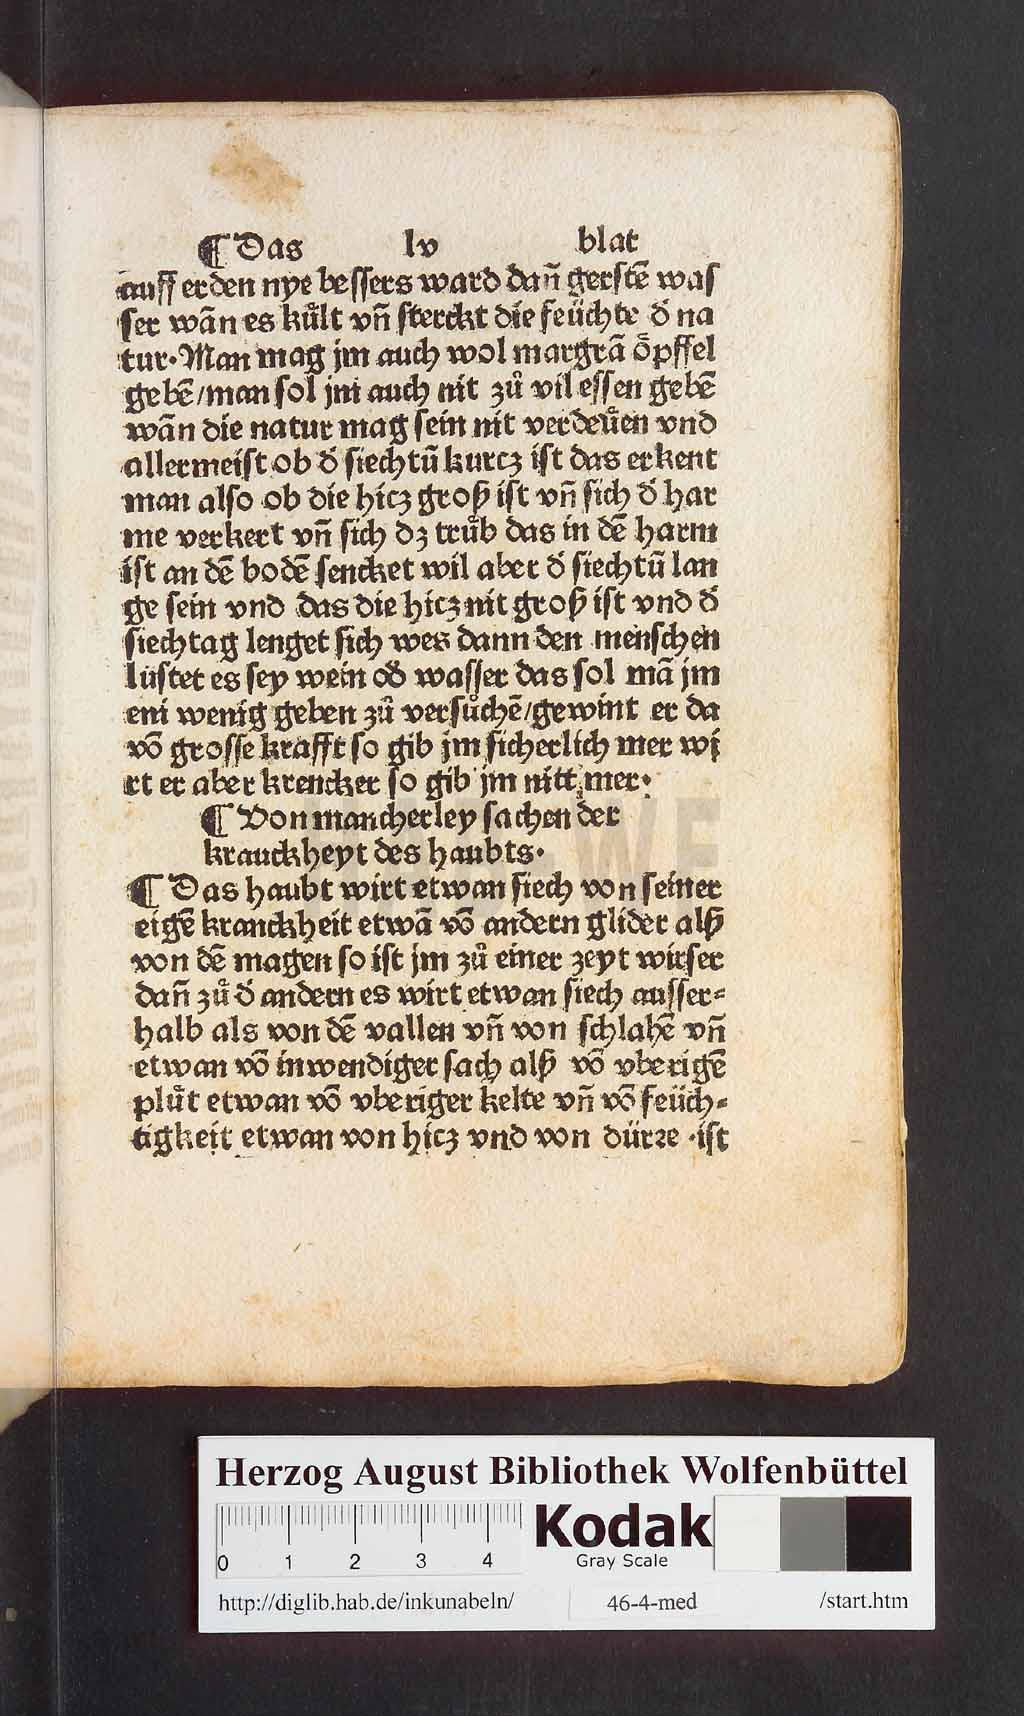 ¶ Das lv blat
auff erden nye bessers ward dañ gerstē was
ser wān es kuͤlt vñ sterckt die feüchte d̄ na
tur. Man mag jm auch wol margrā oͤpffel
gebē/man sol jm auch nit zuͦ vil essen gebē
wān die natur mag sein nit verdeuͤen vnd
allermeist ob d̄ siechtū kurcz ist das erkent
man also ob die hicz groß ist vñ sich d̄ har
me verkert vñ sich dz truͤb das in dē harm
ist an dē bodē sencket wil aber d̄ siechtū lan
ge sein vnd das die hicz nit groß ist vnd d̄
siechtag lenget sich wes dann den menschen
lustet es sey wein od̄ wasser das sol mā jm
ein wenig geben zuͦ versuͦchē/gewint er da
vō grosse krafft so gib jm sicherlich mer wi
rt er aber krencker so gib jm nitt mer.
¶ Von mancherley sachen der
kranckheyt des haubts.
¶ Das haubt wirt etwan siech von seiner
eigē kranckheit etwā vō andern glider alß
von dē magen so ist jm zuͦ einer zeyt wirser
dañ zuͦ d̄ andern es wirt etwan siech ausser=
halb als von dē vallen vñ von schlahē vñ
etwan vō inwendiger sach alß vō vberigē
pluͤt etwan vō vberiger kelte vñ vō feüch=
tigkeit etwan von hicz vnd von dürre .ist
Herzog August Bibliothek Wolfenbüttel
0 1 2 3 4
Kodak
Gray Scale
http://diglib.hab.de/inkunabeln/ 46-4-med /start.htm